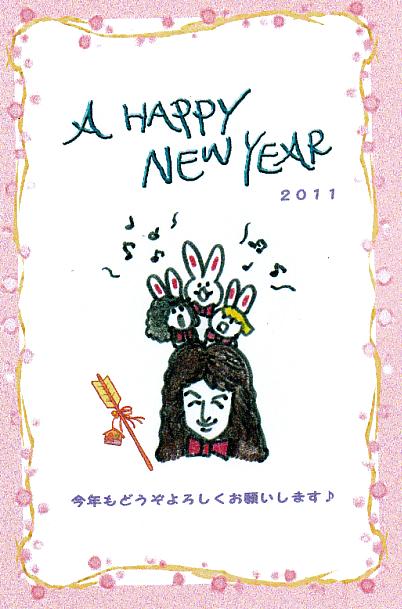 A HAPPY
NEW YEAR
2011
今年もどうぞよろしくお願いします♪